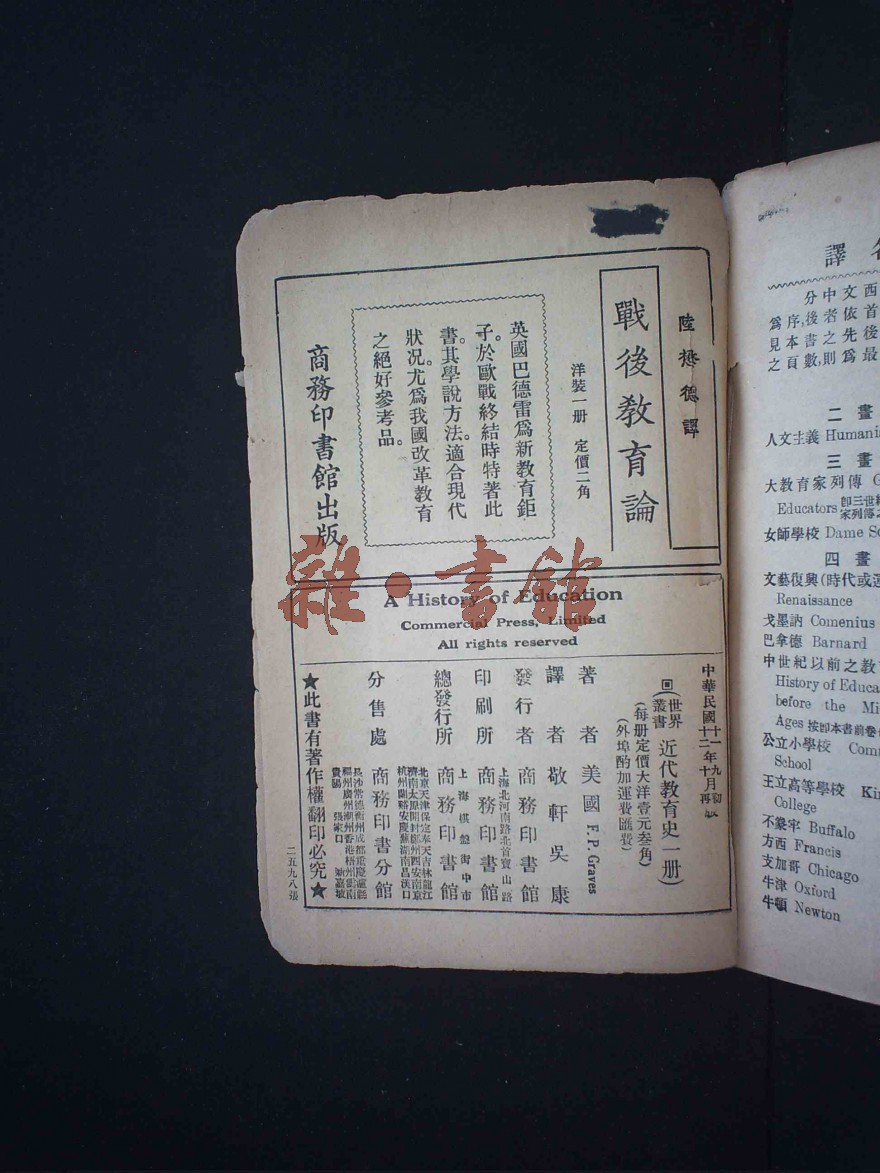 陸懋德譯
戰後教育論
洋裝一册 定價二角
英國巴德雷爲新教育鉅
子。於歐戰終結時特著此
書。其學說方法。適合現代
狀况。尤爲我國改革教育
之絕好參考品。
商務印書館出版
雜·書館
A History of Education
Commercial Press, Limited
All rights reserved
中華民國十一年九月初版
十二年十月再版
世界叢書
近代教育史(一册)
(每册定價大洋壹元叁角)
(外埠酌加運費匯費)
著者 美國 F. P. Graves
譯者 敬軒 吳康
發行者 商務印書館
上海北河南路北首寶山路
印刷所 商務印書館
上海棋盤街中市
總發行所 商務印書館
北京天津保定奉天吉林龍江
濟南太原開封鄭州西安南京
杭州蘭谿安慶蕪湖南昌漢口
分售處 商務印書分館
長沙常德衡州成都重慶瀘縣
福州廣州潮州香港梧州雲南
貴陽 張家口 新嘉坡
★此書有著作權翻印必究★
二五九八張
譯名
西
文中分
首依者後,序爲
後先之書本見
最爲則,數頁之
二畫
人文主義 Humani
三畫
大教育家列傳 G
Educators
女師學校 Dame Sc
四畫
文藝復興(時代或運
Renaissance
戈墨訥 Comenius
巴拿德 Barnard
中世紀以前之教
History of Educa
before the Mi
Ages 按卽本書前卷
公立小學校 Comm
School
王立高等學校 Kin
College
不綮牢 Buffalo
方西 Francis
支加哥 Chicago
牛津 Oxford
牛頓 Newton